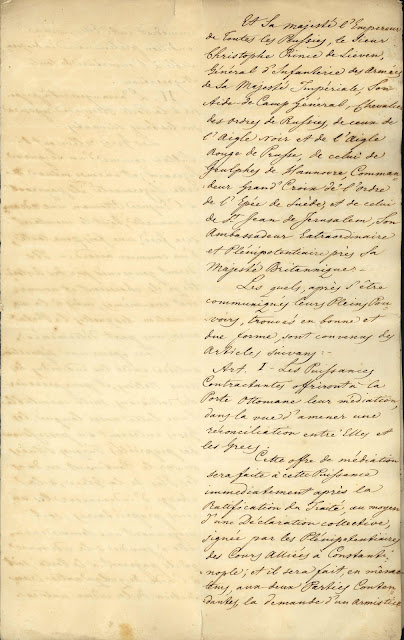 Et Sa Majesté l'Empereur
de Toutes les Russies, le Sieur
Christophe Prince de Lieven,
Général d'Infanterie des Armées
de Sa Majesté Impériale, Son
Aide de Camp Général, Chevalier
des ordres de Russies, de ceux de
l'Aigle Noir et de l'Aigle
Rouge de Prusse, de celui de
Guelphes de Hannovre, Comman-
deur Grand' Croix de l'Ordre
de l'Epée de Suède, et de celui
de St Jean de Jerusalem, Son
Ambassadeur Extraordinaire
et Plénipotentiaire près Sa
Majesté Britannique:-
Les quels, après s'être
communiqués leurs Pleins Pou-
voirs, trouvés en bonne et
due forme, sont convenus des
Articles suivans:-
Art. I - Les Puissances
Contractantes offriront à la
Porte Ottomane leur médiation,
dans la vue d'amener une
réconciliation entre Elles et
les Grecs;
Cette offre de médiation
sera faite à cette Puissance
immédiatement après la
Ratification du Traité, au moyen
d'une Déclaration collective,
signée par les Plénipotentiaires
des Cours Alliées à Constanti-
nople; et il sera fait, en même
tems, aux deux Parties Conten-
dantes, la demande d'un Armistice